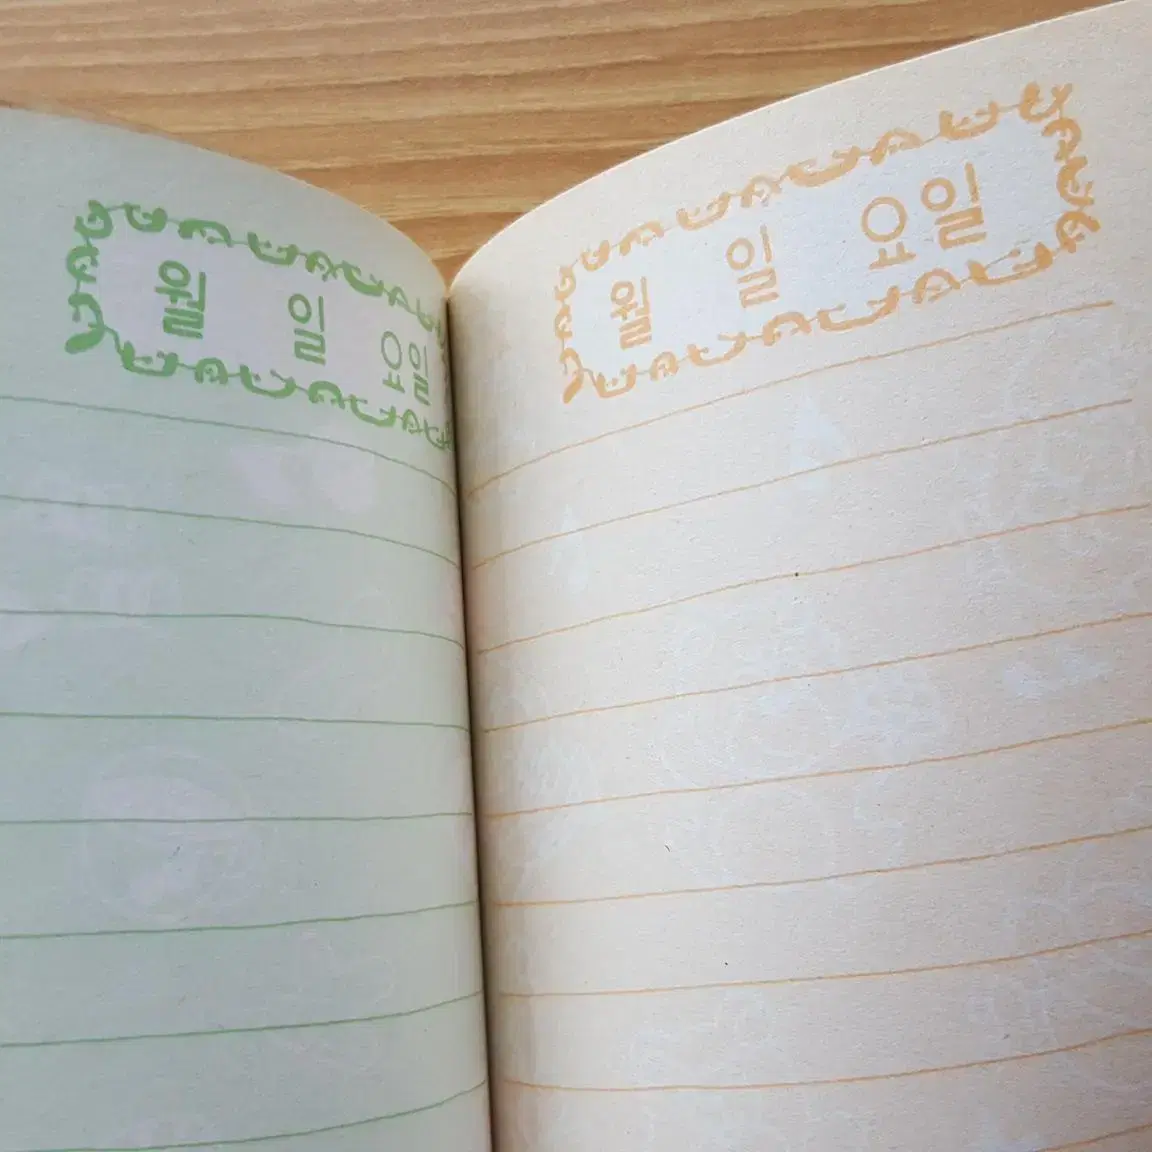 월 일 요일
월 일 요일